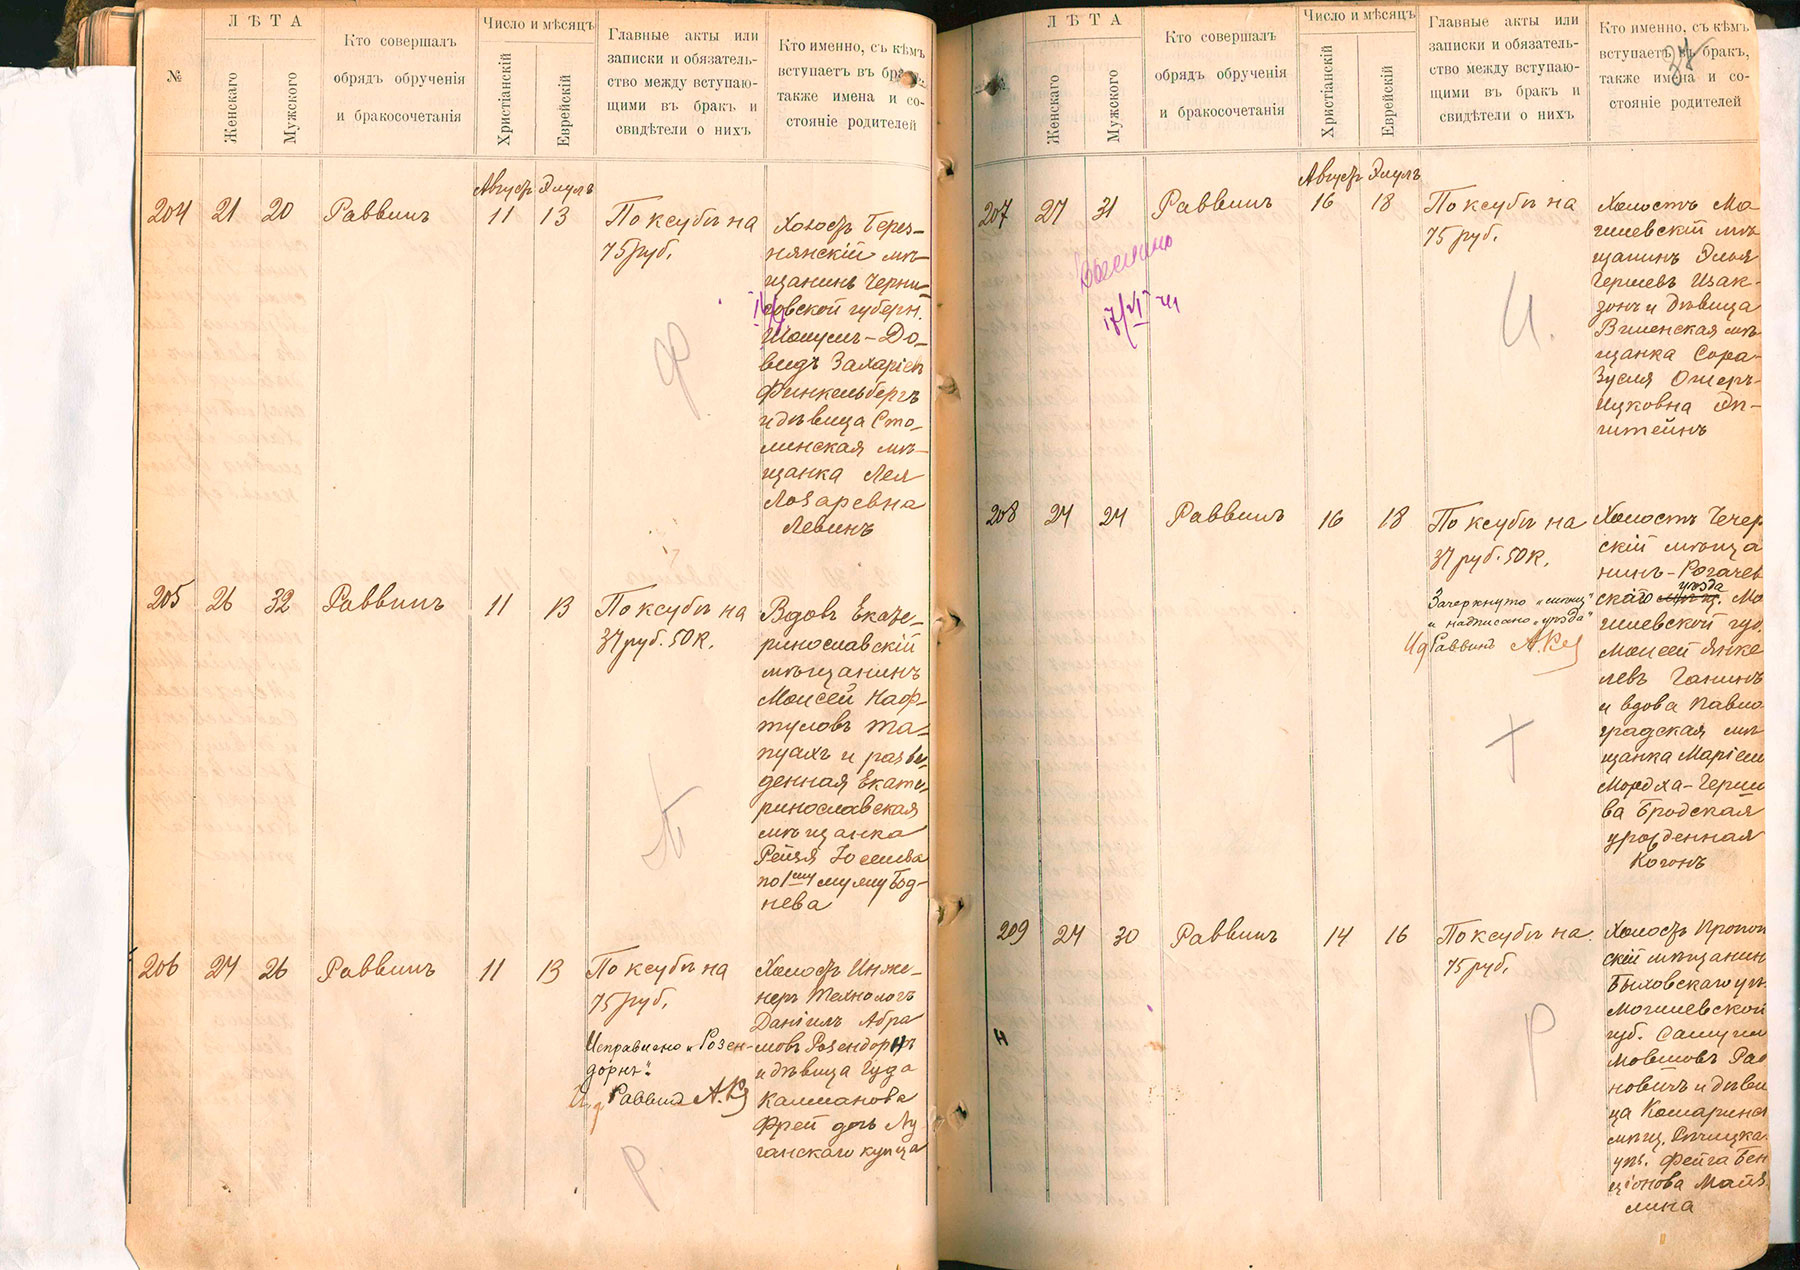 №
ЛѢТА
Женскаго
Мужского
Кто совершалъ
обрядъ обрученія
и бракосочетанія
Число и мѣсяцъ
Христіанскій
Еврейскій
Главные акты или
записки и обязатель-
ство между вступаю-
щими въ бракъ и
свидѣтели о нихъ
Кто именно, съ кѣмъ
вступаетъ въ бракъ,
также имена и со-
стояніе родителей
Августъ Элулъ
204 21 20 Раввинъ 11 13
По ксубѣ на
75 руб.
Холостъ Берез-
нянскій мѣ-
щанинъ Черни-
говской губерн.
Шолумъ-До-
видъ Захаріевъ
Финкельбергъ
и дѣвица Сто-
линская мѣ-
щанка Лея
Лозаревна
Левинъ
Ф.
205 26 32 Раввинъ 11 13
По ксубѣ на
37 руб. 50 к.
Вдовъ Екате-
ринославскій
мѣщанинъ
Моисей Наф-
туловъ Та-
пуахъ и разве-
денная Екате-
ринославская
мѣщанка
Рейзя Іосиева
по 1му мужу Бод-
нева
Т
206 24 26 Раввинъ 11 13
По ксубѣ на
75 руб.
Исправлено „Розен-
дорнъ“.
И д Раввина
Холостъ Инже-
неръ Технологъ
Даніилъ Абра
мовъ Розендорнъ
и дѣвица Гуда
Калманова
Фрей дочь Лу-
ганскаго купца
Р.
37
ЛѢТА
Женскаго
Мужского
Кто совершалъ
обрядъ обрученія
и бракосочетанія
Число и мѣсяцъ
Христіанскій
Еврейскій
Главные акты или
записки и обязатель-
ство между вступаю-
щими въ бракъ и
свидѣтели о нихъ
Кто именно, съ кѣмъ
вступаетъ въ бракъ,
также имена и со-
стояніе родителей
Августъ Элулъ
207 27 31 Раввинъ 16 18
По ксубѣ на
75 руб.
Холостъ Мо
гилевскій мѣ
щанинъ Элья
Гершевъ Изак-
зонъ и дѣвица
Виленская мѣ-
щанка Сора-
Зуселя Ошеръ-
Ицковна Эп-
штейнъ
И.
208 24 24 Раввинъ 16 18
По ксубѣ на
37 руб. 50 к.
Зачеркнуто „мѣщ“
и надписано „уѣзда“
И д Раввинъ
Холостъ Чечер
скій мѣща
нинъ-Рогачев
уѣзда
скаго мѣщ. Мо
гилевской губ.
Моисей Янке
левъ Ганинъ
и вдова Павло
градская мѣ
щанка Маріем
Мордха-Герше
ва Бродская
урожденная
Когонъ
209 24 30 Раввинъ 14 16
По ксубѣ на
75 руб.
Холостъ Пропой
скій мѣщанин
Быховскаго уѣ.
Могилевской
губ. Самуил
Мовшовъ Ра
новичъ и дѣви
ца Комаринс
мѣщ. Рѣчицка
уѣ. Фейга Бен
ціонова Май
лина
Р